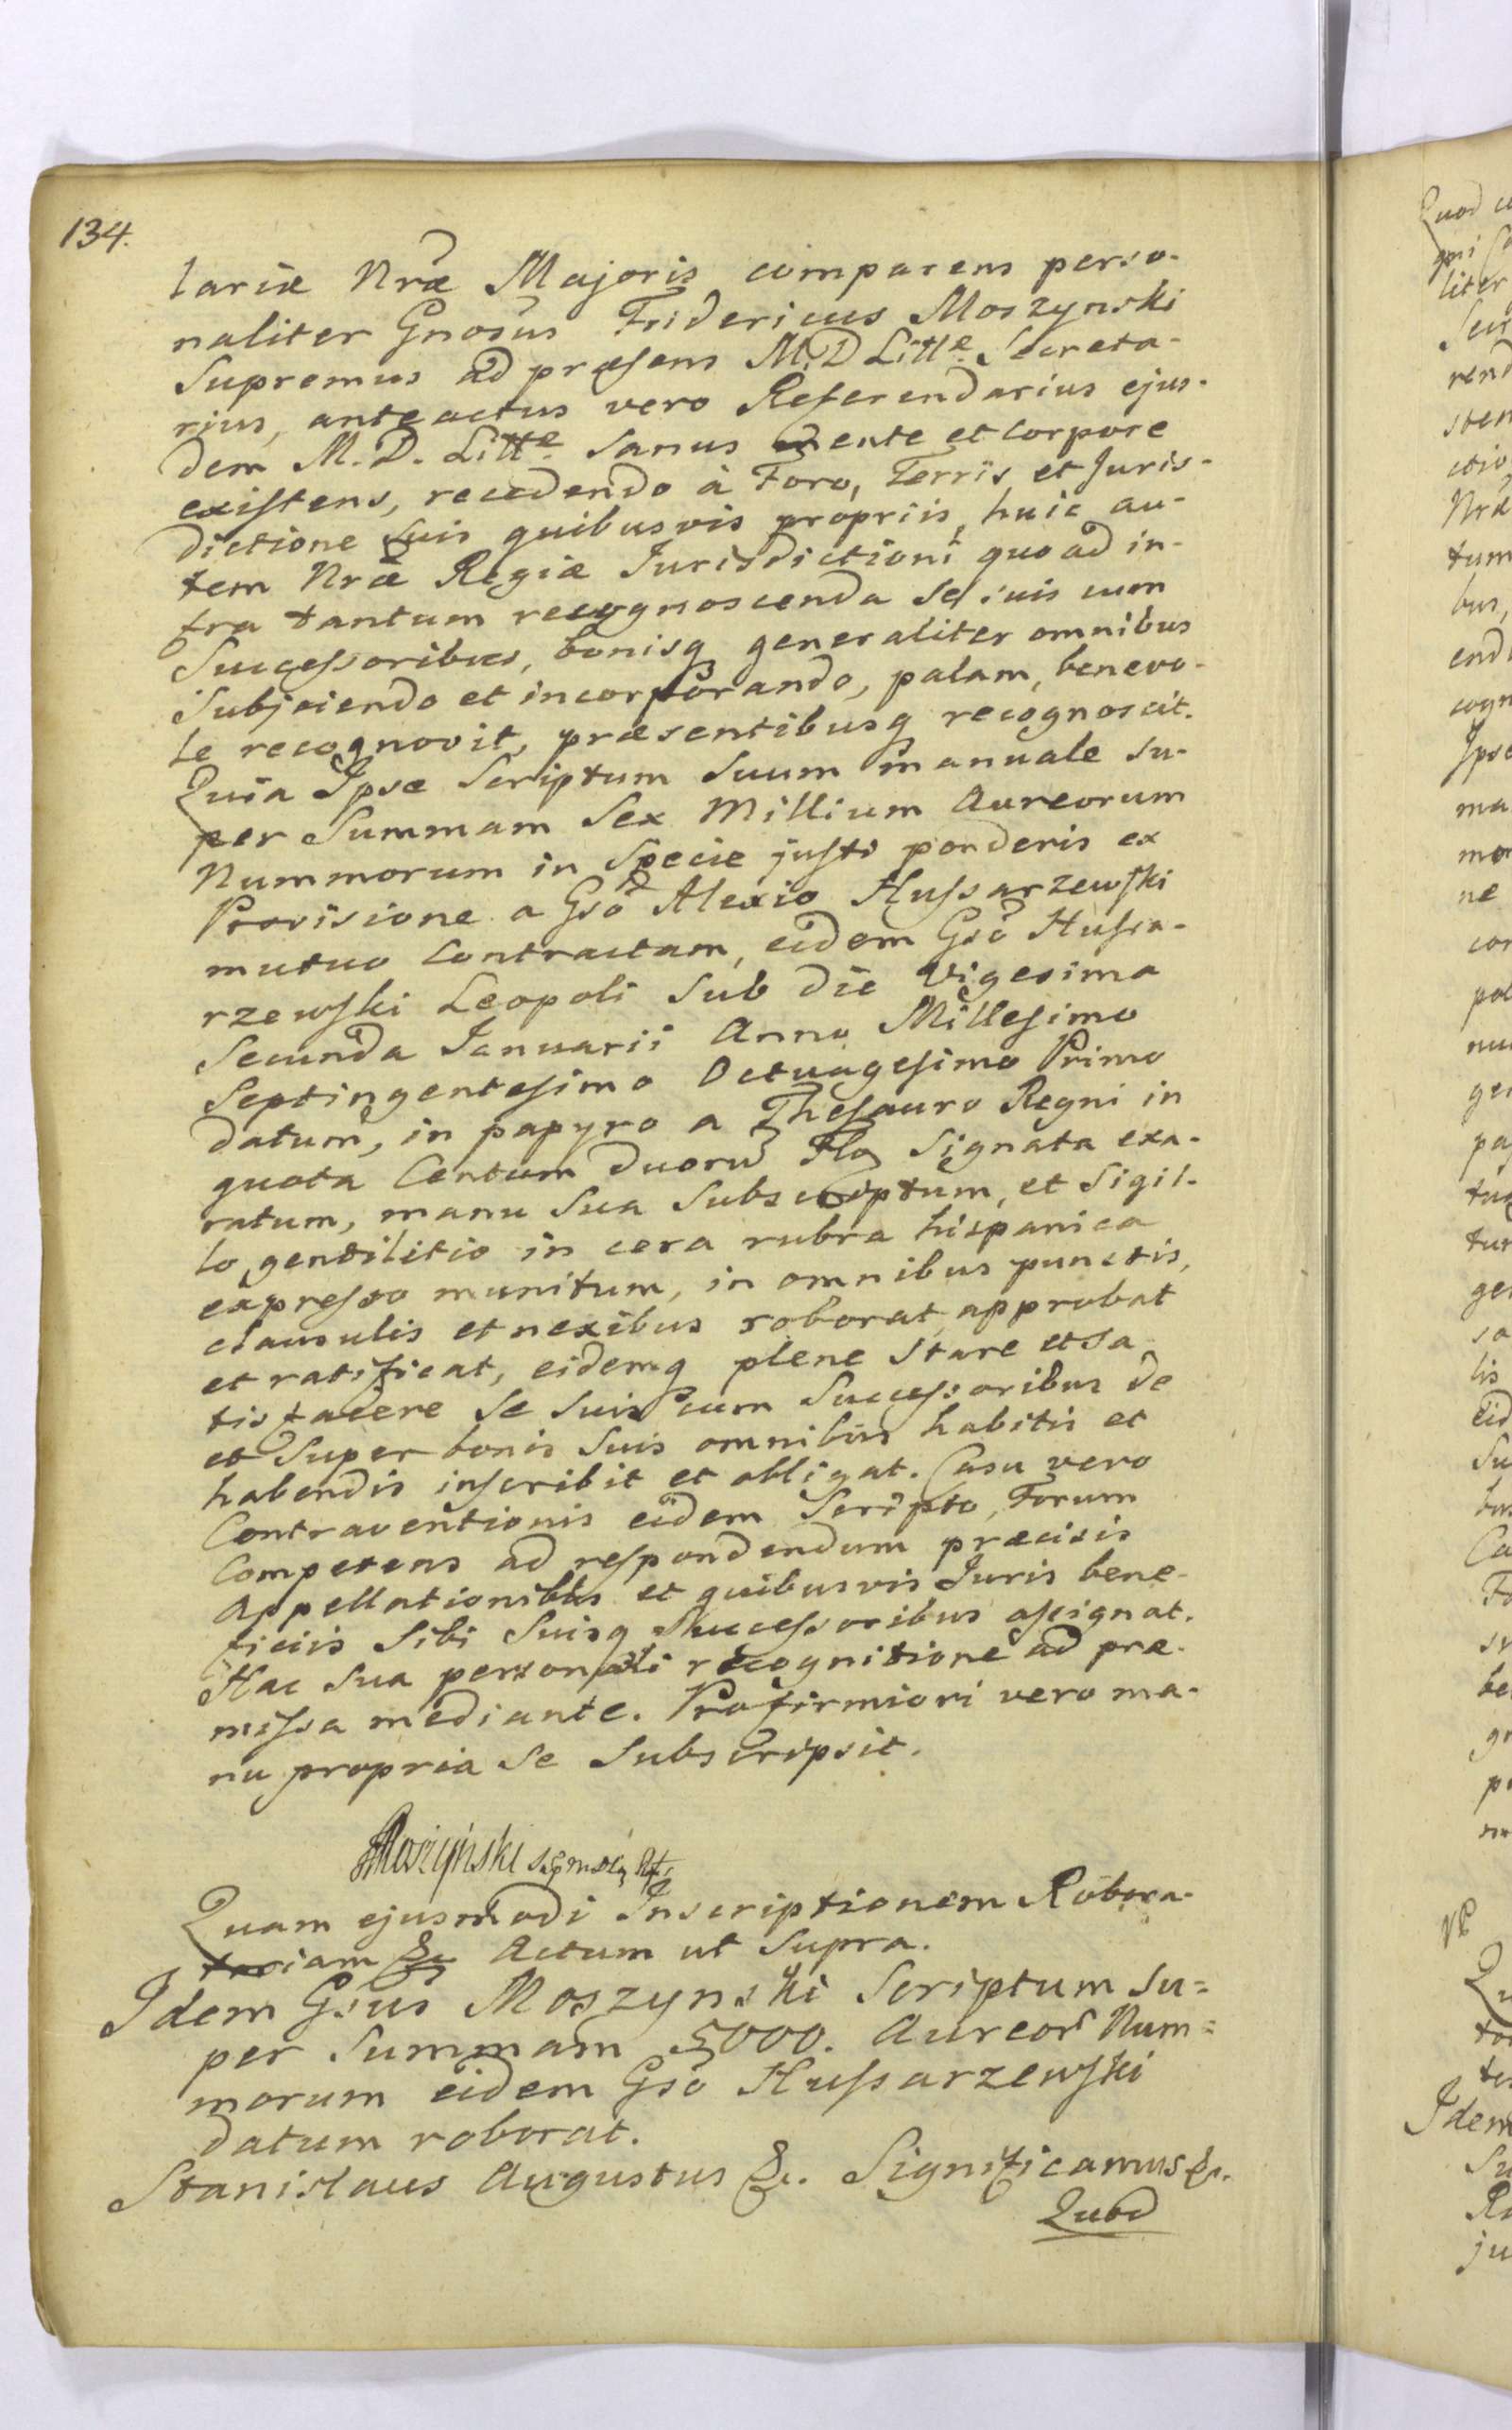 134.
lariæ Nræ Majoris comparens perso-
naliter Gnosus Fridericus Moszynski
Supremus ad præsens M. D. Litt͠e Secreta-
rius, anteactus vero Referendarius ejus-
dem M. D. Litt͠e. Sanus mente et corpore
existens, recedendo à Foro, Terris et Juris-
dictione Suis quibusvis propriis, huic au-
tem Nræ Regiæ Jurisdictioni quo ad in-
fra tantum recognoscenda se suis cum
Successoribus, bonisq generaliter omnibus
Subjiciendo et incorporando, palam, benevo-
le recognovit, præsentibusq recognoscit.
Quia Ipse Scriptum Suum manuale Su-
per Summam Sex Millium Aureorum
Nummorum in Specie justi ponderis ex
Provisione a Gso Alexio Hussarzewski
mutuo Contractam, eidem Gso Hussa-
rzewski Leopoli Sub die Vigesima
Secunda Januarii Anno Millesimo
Septingentesimo Octuagesimo Primo
datum, in papyro a Thesauro Regni in
quota Centum duoru Flo Signata exa-
ratum, manu Sua Subscriptum, et Sigil-
lo gentilitio in cera rubra hispanica
expresso munitum, in omnibus punctis,
clausulis et nexibus roborat, approbat
et ratificat, eidemq plene Stare et Sa-
tisfacere Se Suis cum Successoribus de
et Super bonis Suis omnibus habitis et
habendis inscribit et obligat. Casu vero
Contraventionis eidem Scripto, Forum
Competens ad respondendum præcisis
Appellationibus et quibusvis Juris bene-
ficiis Sibi Suisq Successoribus assignat.
Hac Sua personali recognitione ad præ-
missa mediante. Pro firmiori vero ma-
nu propria Se Subscripsit.
FMoszyński
Quam ejusmodi Inscriptionem Robora-
toriam &c Actum ut Supra.
Idem Gsus Moszynski Scriptum Su=
per Summam 5000. Aureor Num=
morum eidem Gso Hussarzewski
datum roborat.
Stanislaus Augustus &c. Significamus &c.
Quod